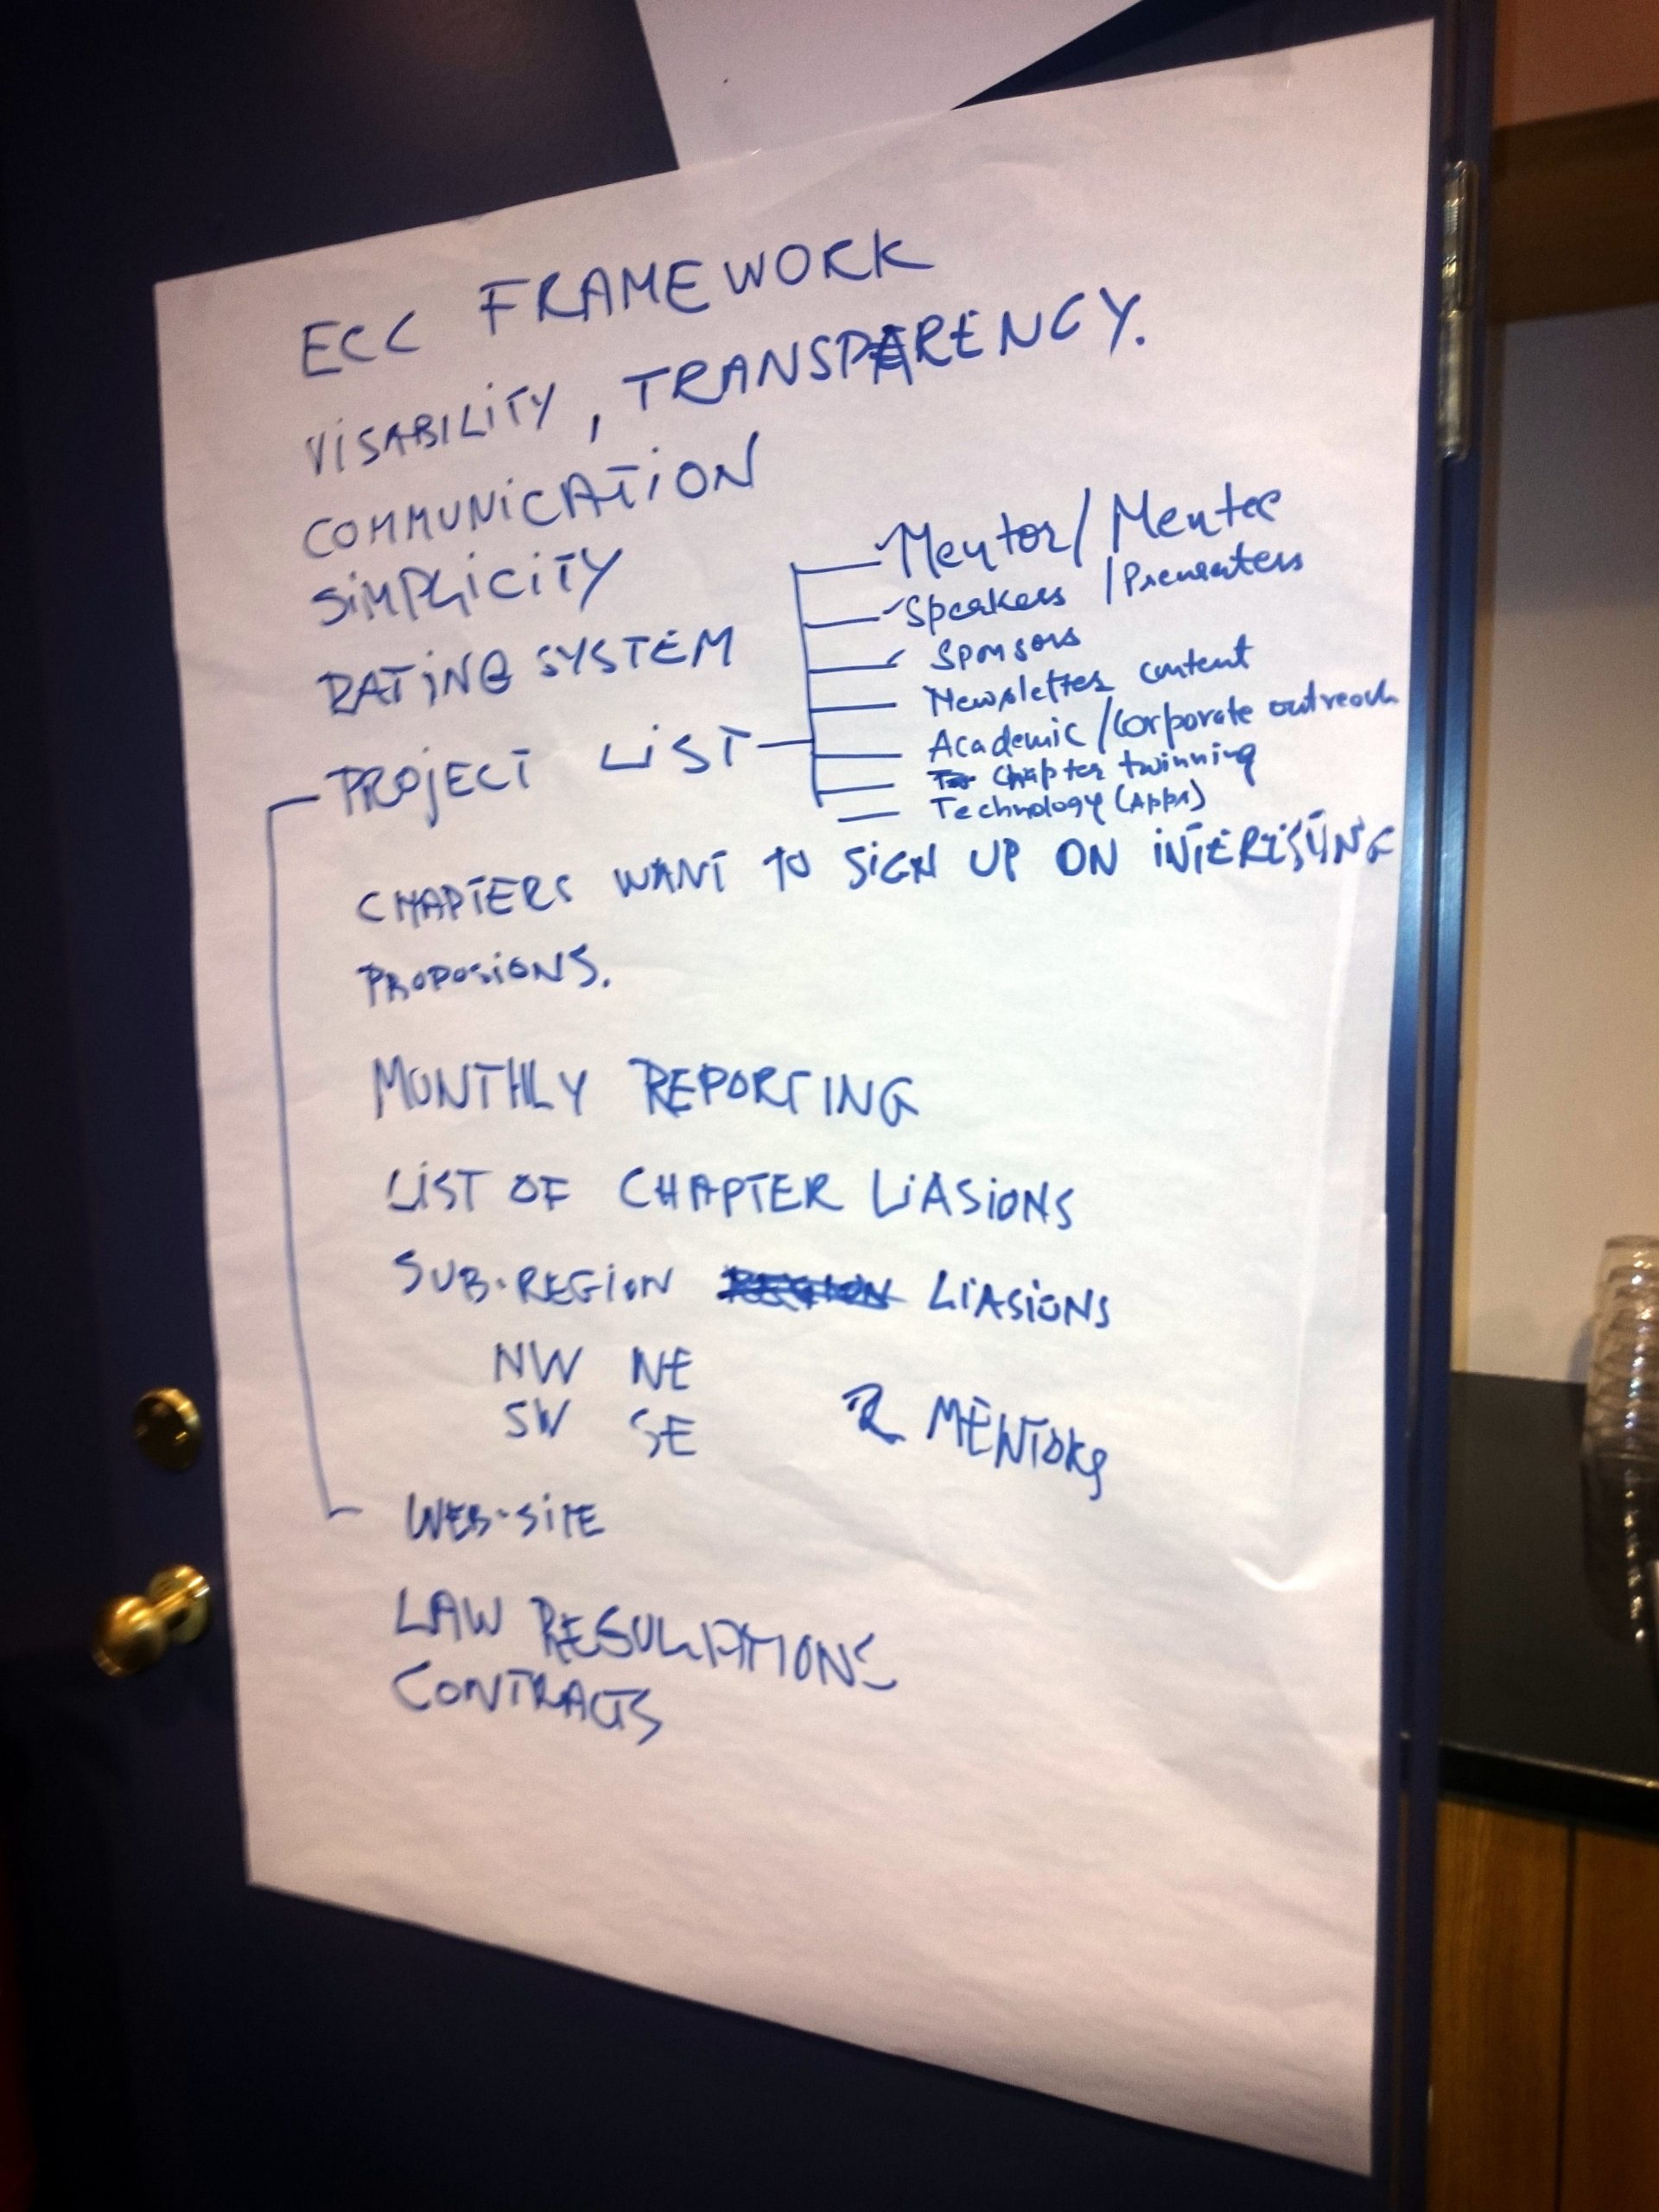 ECC FRAMEWORK
VISABILITY, TRANSPARENCY.
COMMUNICATION
SIMPLICITY
RATING SYSTEM
PROJECT LIST
Mentor/Mentee
Speakers /Presenters
Sponsors
Newsletter content
Academic/Corporate outreach
Chapter twinning
Technology (Apps)
CHAPTERS WANT TO SIGN UP ON INTERISTING
PROPOSIONS.
MONTHLY REPORTING
LIST OF CHAPTER LIASIONS
SUB-REGION LIASIONS
NW NE
SW SE
MENTORS
WEB-SITE
LAW REGULATIONS
CONTRACTS